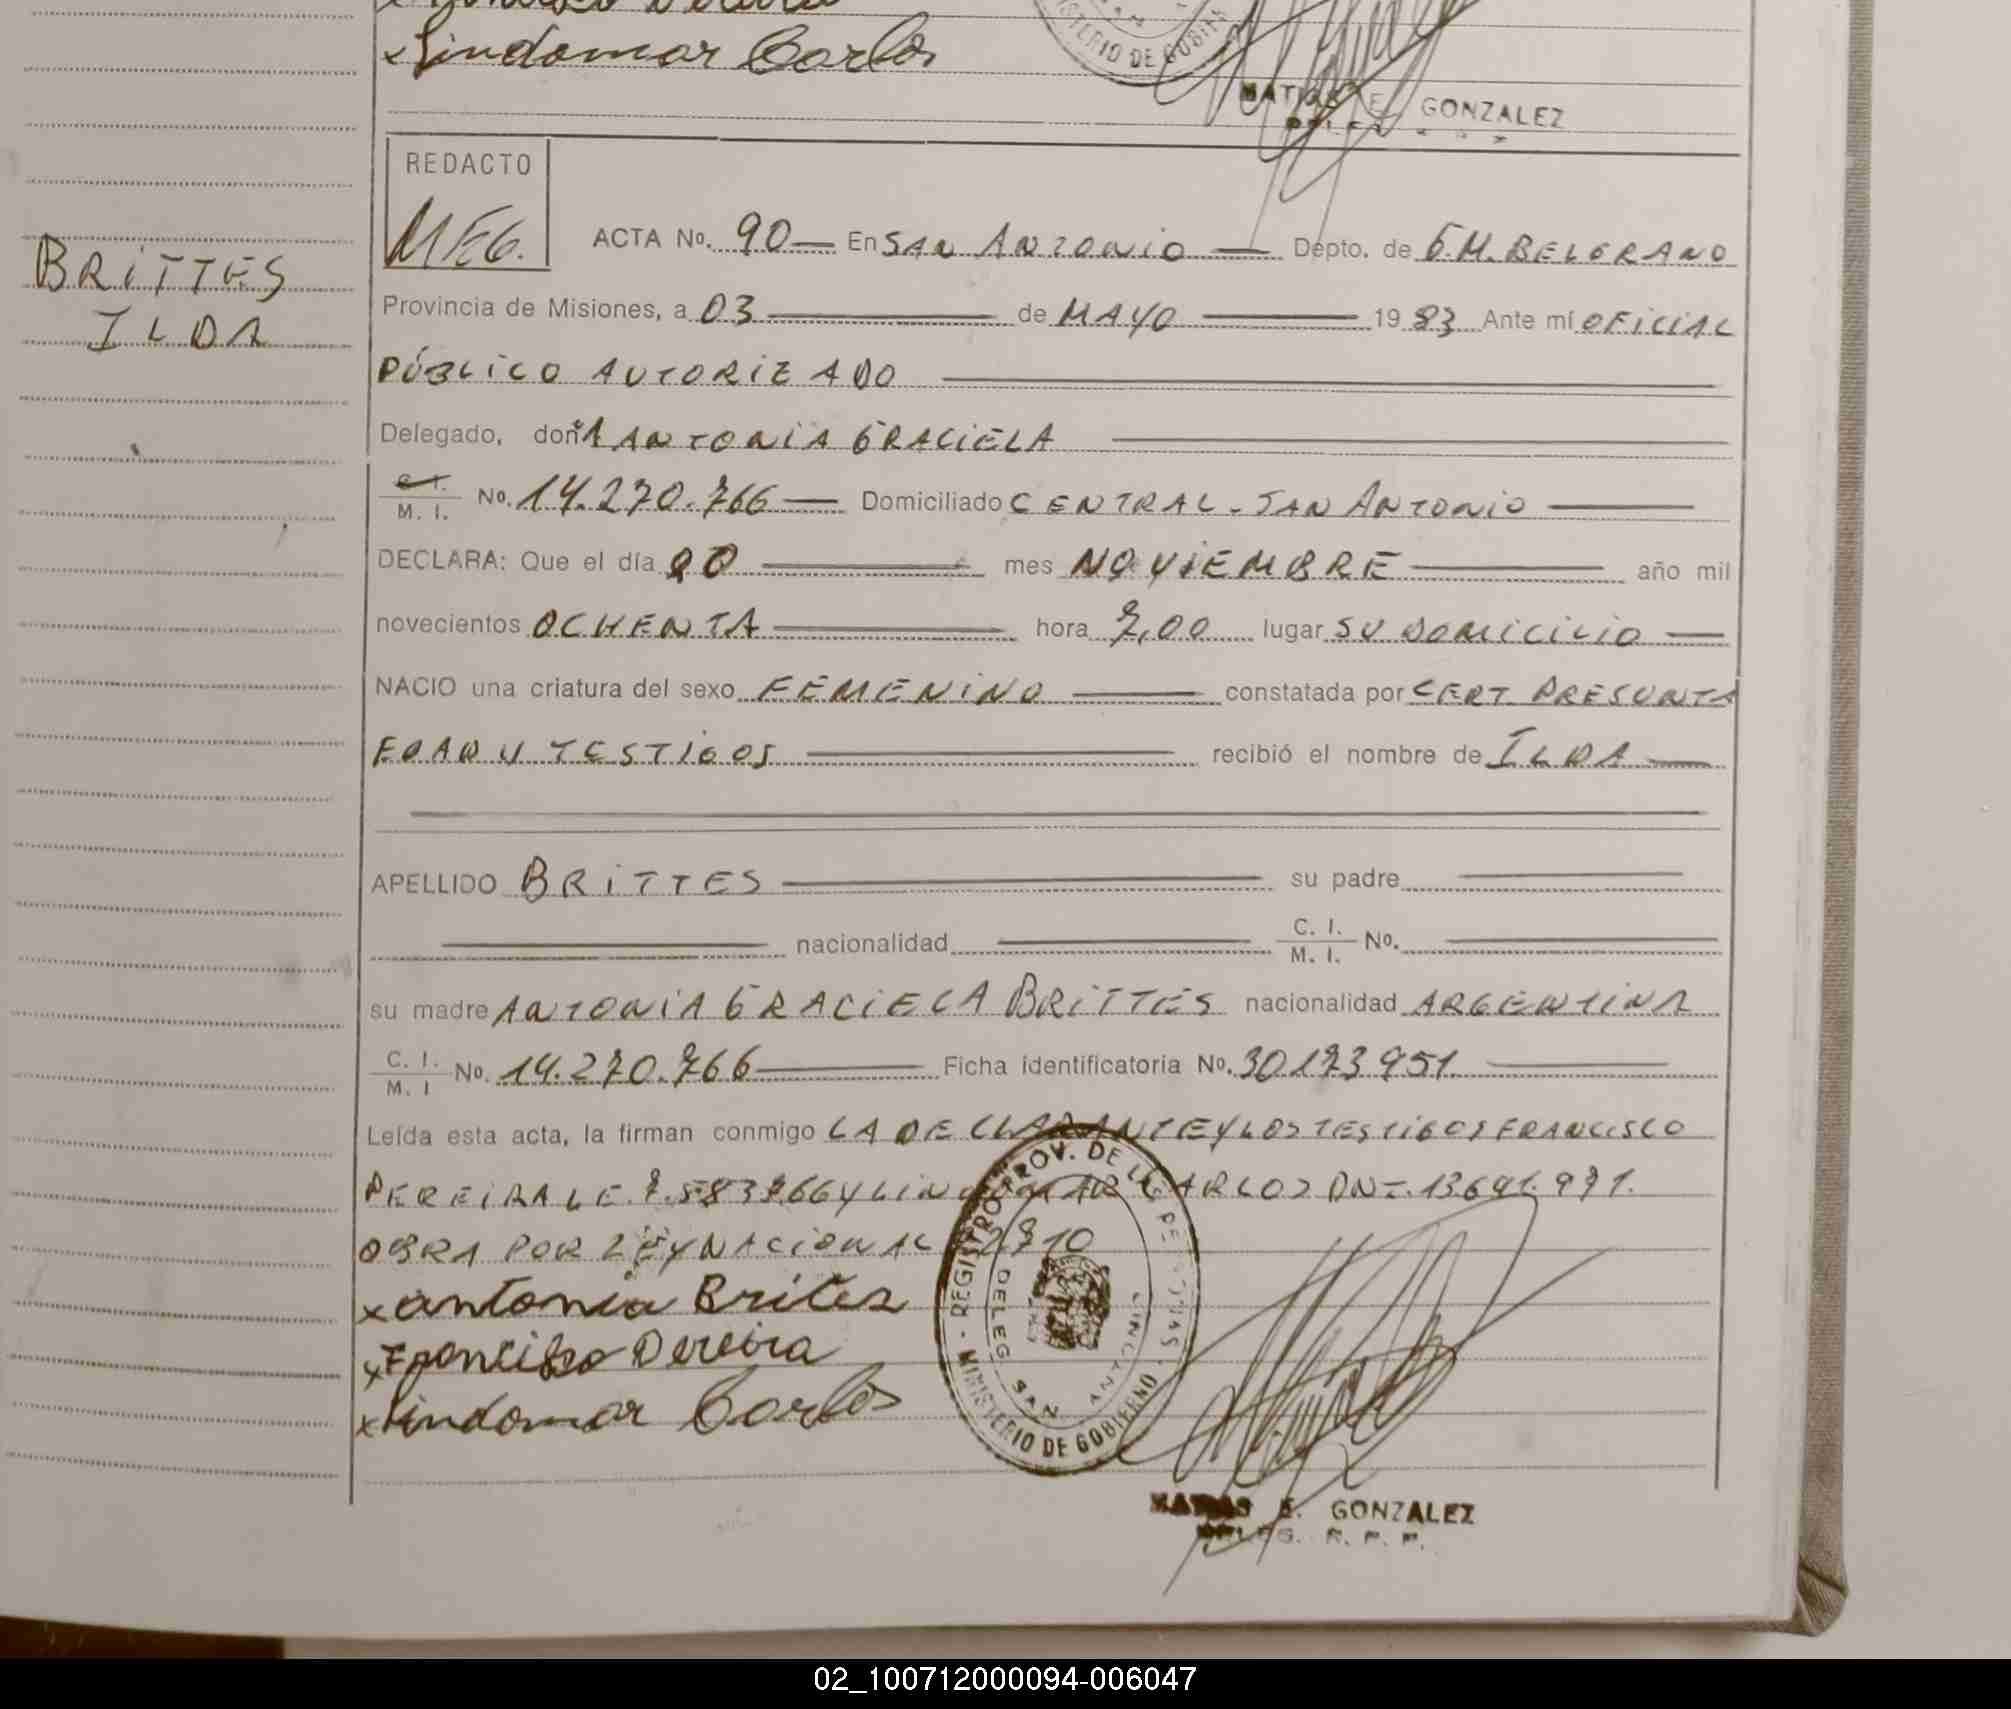 Lindomar Carlos
MINISTERIO DE GOBIERNO
MATIAS E. GONZALEZ
REDACTO
MEG.
ACTA No. 90 — En SAN ANTONIO — Depto. de G.M. BELGRANO
BRITTES
ILDA
Provincia de Misiones, a 03 — de MAYO — 1983 Ante mí OFICIAL
PÚBLICO AUTORIZADO —
Delegado, doñA ANTONIA GRACIELA —
C. I.
M. I. No. 14.270.766 — Domiciliado CENTRAL - SAN ANTONIO —
DECLARA: Que el día — mes NOVIEMBRE — año mil
novecientos OCHENTA — hora 7,00 lugar SU DOMICILIO —
NACIO una criatura del sexo FEMENINO — constatada por CERT. PRESUNTA
EDAD Y TESTIGOS — recibió el nombre de ILDA —
APELLIDO BRITTES — su padre —
— nacionalidad — C. I. M. I. No. —
su madre ANTONIA GRACIELA BRITTES nacionalidad ARGENTINA
C. I. M. I No. 14.270.766 — Ficha identificatoria No. 30173951. —
Leída esta acta, la firman conmigo LA DECLARANTE Y LOS TESTIGOS FRANCISCO
PEREIRA LE. 7.583766 Y LINDOMAR CARLOS DNI. 13691.971.
OBRA POR LEY NACIONAL
x antonia Brites
x Francisco Pereira
x Lindomar Carlos
REGISTRO PROV. DE LAS PERSONAS - MINISTERIO DE GOBIERNO
DELEG. SAN ANTONIO
MATIAS E. GONZALEZ
DELEG. R. P. P.
02_100712000094-006047